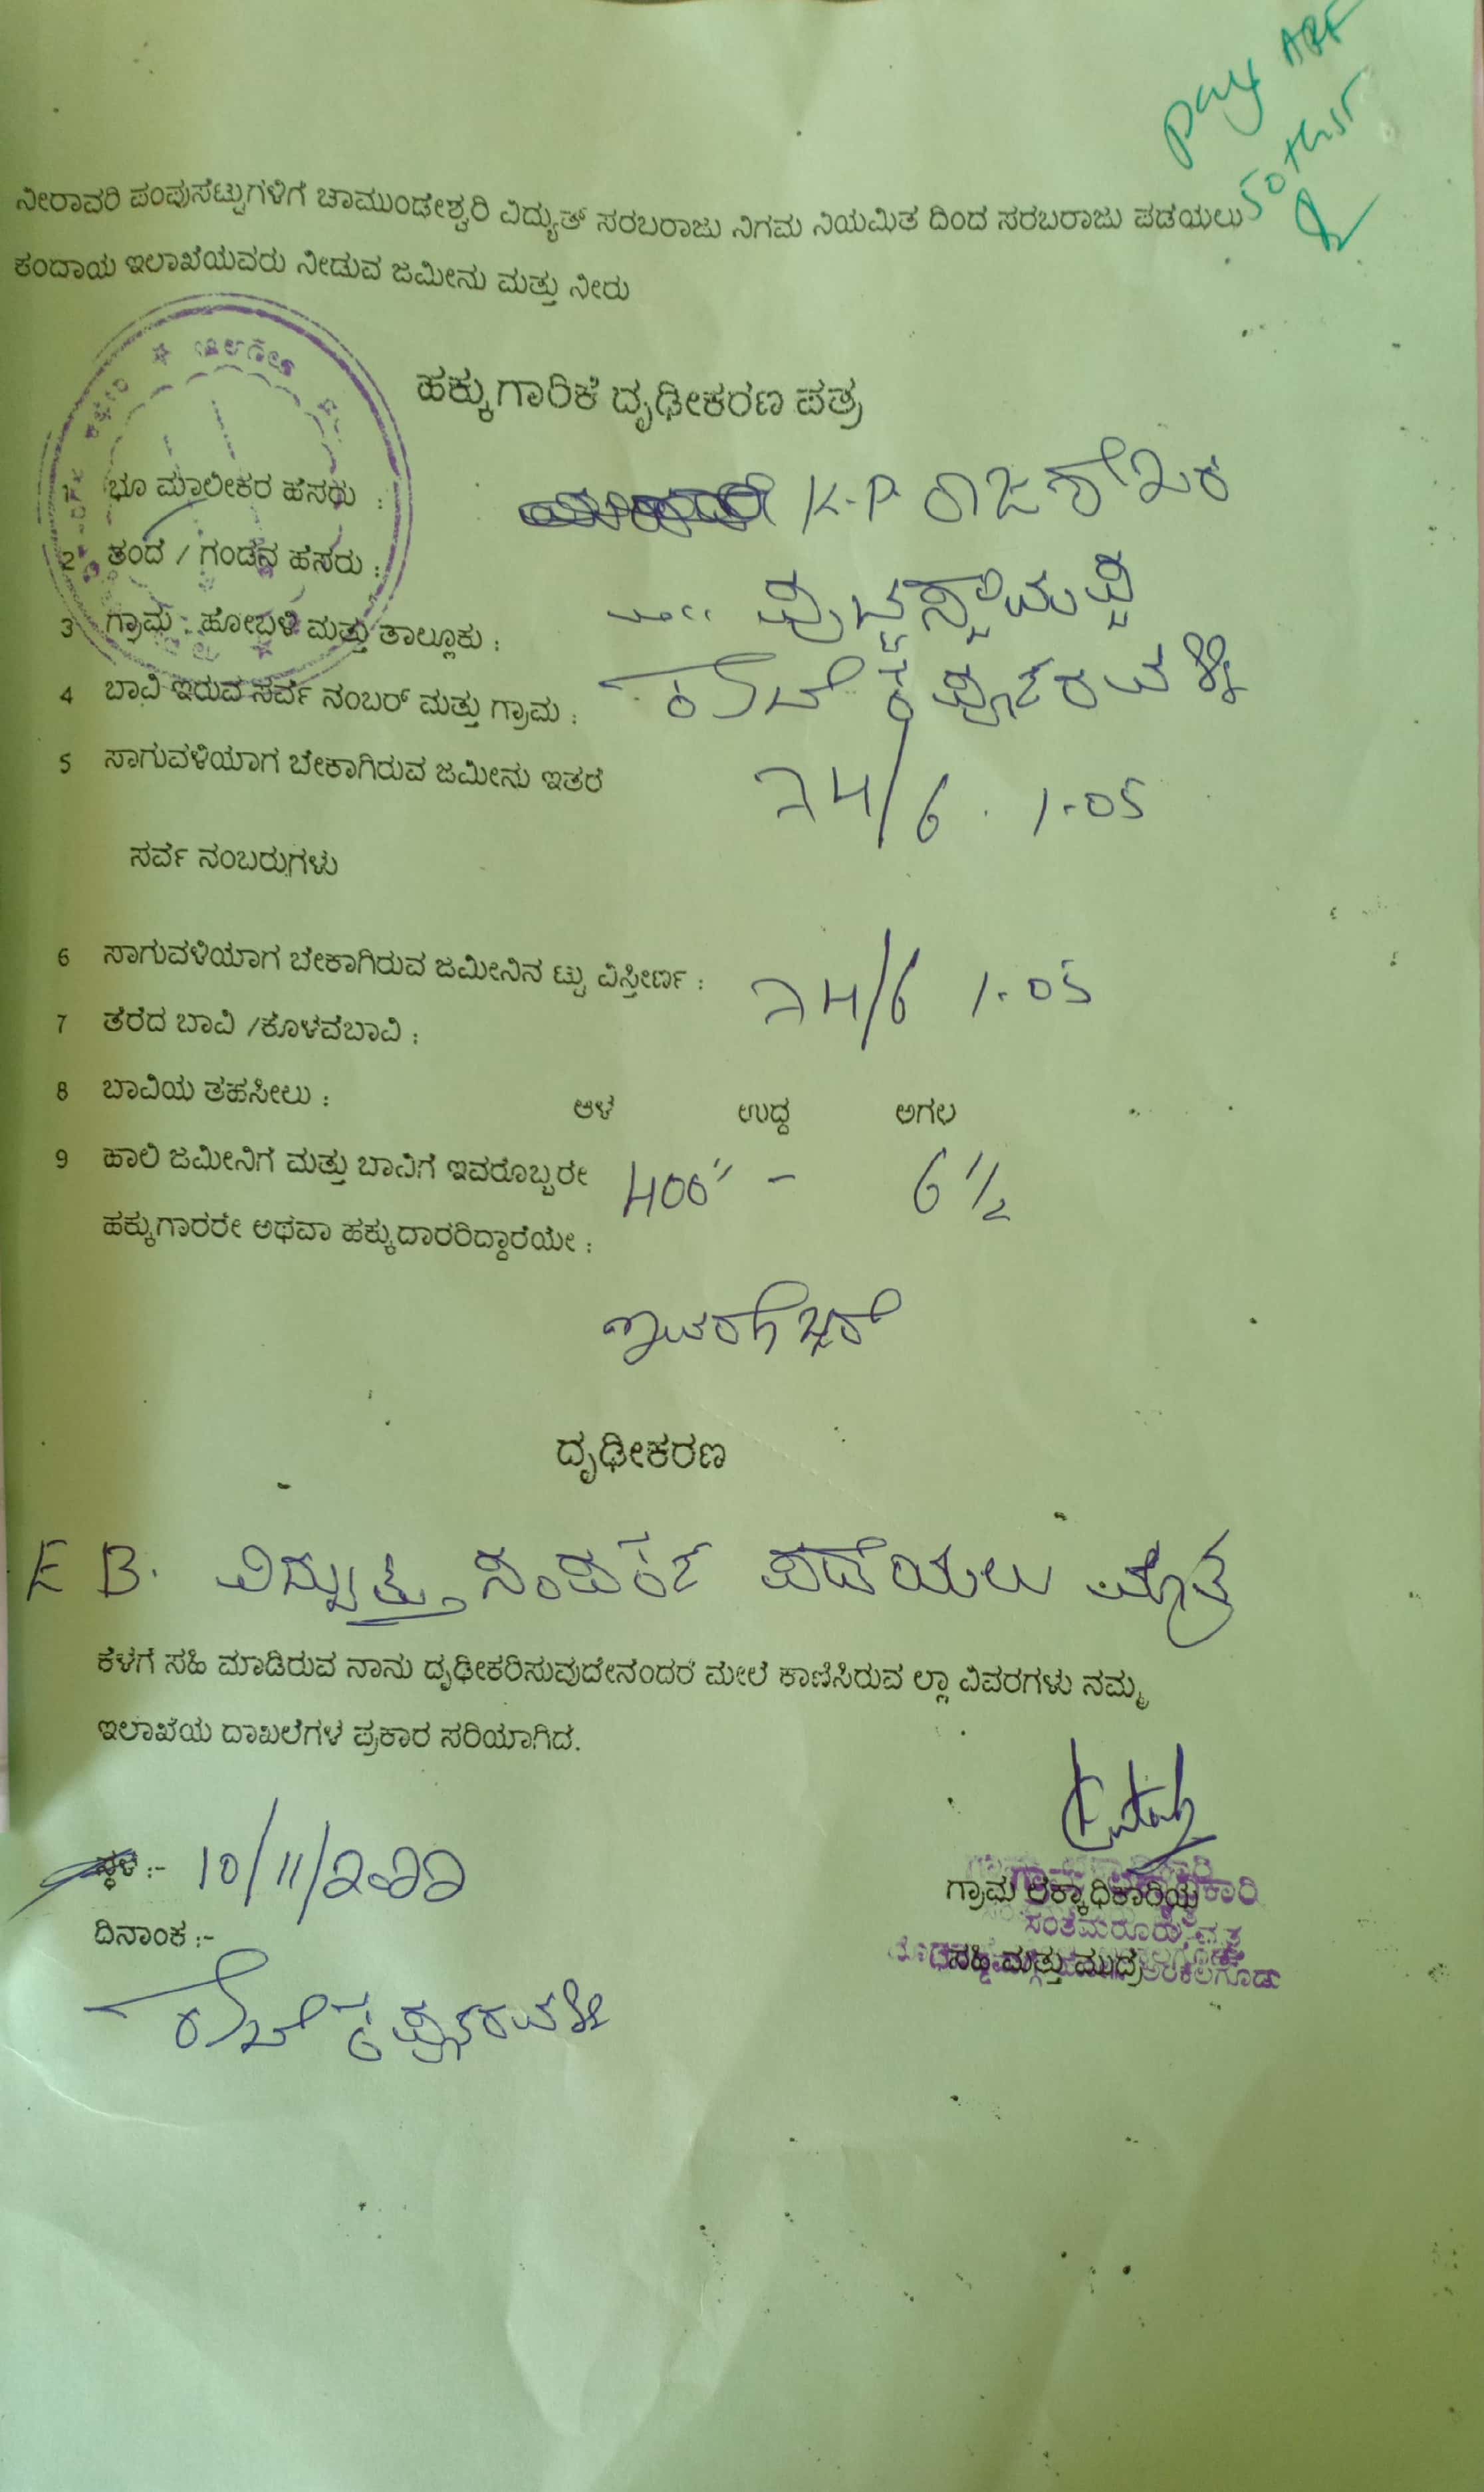 pay ABF
50
ನೀರಾವರಿ ಪಂಪುಸೆಟ್ಟುಗಳಿಗೆ ಚಾಮುಂಡೇಶ್ವರಿ ವಿದ್ಯುತ್ ಸರಬರಾಜು ನಿಗಮ ನಿಯಮಿತ ದಿಂದ ಸರಬರಾಜು ಪಡೆಯಲು
ಕಂದಾಯ ಇಲಾಖೆಯವರು ನೀಡುವ ಜಮೀನು ಮತ್ತು ನೀರು
ಹಕ್ಕುಗಾರಿಕೆ ದೃಢೀಕರಣ ಪತ್ರ
1 ಭೂ ಮಾಲೀಕರ ಹೆಸರು : K.P ರಾಜಶೇಖರ
2 ತಂದೆ / ಗಂಡನ ಹೆಸರು :
3 ಗ್ರಾಮ : ಹೋಬಳಿ ಮತ್ತು ತಾಲ್ಲೂಕು :
4 ಬಾವಿ ಇರುವ ಸರ್ವೆ ನಂಬರ್ ಮತ್ತು ಗ್ರಾಮ :
5 ಸಾಗುವಳಿಯಾಗ ಬೇಕಾಗಿರುವ ಜಮೀನು ಇತರೆ 74/6 . 1.05
ಸರ್ವೆ ನಂಬರುಗಳು
6 ಸಾಗುವಳಿಯಾಗ ಬೇಕಾಗಿರುವ ಜಮೀನಿನ ಟ್ಟು ವಿಸ್ತೀರ್ಣ : 74/6 1.05
7 ತೆರೆದ ಬಾವಿ /ಕೊಳವೆಬಾವಿ :
8 ಬಾವಿಯ ತಹಸೀಲು : ಆಳ ಉದ್ದ ಅಗಲ
9 ಹಾಲಿ ಜಮೀನಿಗೆ ಮತ್ತು ಬಾವಿಗೆ ಇವರೊಬ್ಬರೇ 400" - 6 1/2
ಹಕ್ಕುಗಾರರೇ ಅಥವಾ ಹಕ್ಕುದಾರರಿದ್ದಾರೆಯೇ :
ಇವರೊಬ್ಬರೆ
ದೃಢೀಕರಣ
E B. ವಿದ್ಯುತ್ ಸಂಪರ್ಕ ಪಡೆಯಲು ಮಾತ್ರ
ಕೆಳಗೆ ಸಹಿ ಮಾಡಿರುವ ನಾನು ದೃಢೀಕರಿಸುವುದೇನೆಂದರೆ ಮೇಲೆ ಕಾಣಿಸಿರುವ ಲ್ಲಾ ವಿವರಗಳು ನಮ್ಮ
ಇಲಾಖೆಯ ದಾಖಲೆಗಳ ಪ್ರಕಾರ ಸರಿಯಾಗಿದೆ.
ಸ್ಥಳ :- 10/11/2022
ಗ್ರಾಮ ಲೆಕ್ಕಾಧಿಕಾರಿಯ
ದಿನಾಂಕ :-
ಸಂತೆಮರೂರು ವೃತ್ತ
ಸಹಿ ಮತ್ತು ಮುದ್ರೆ